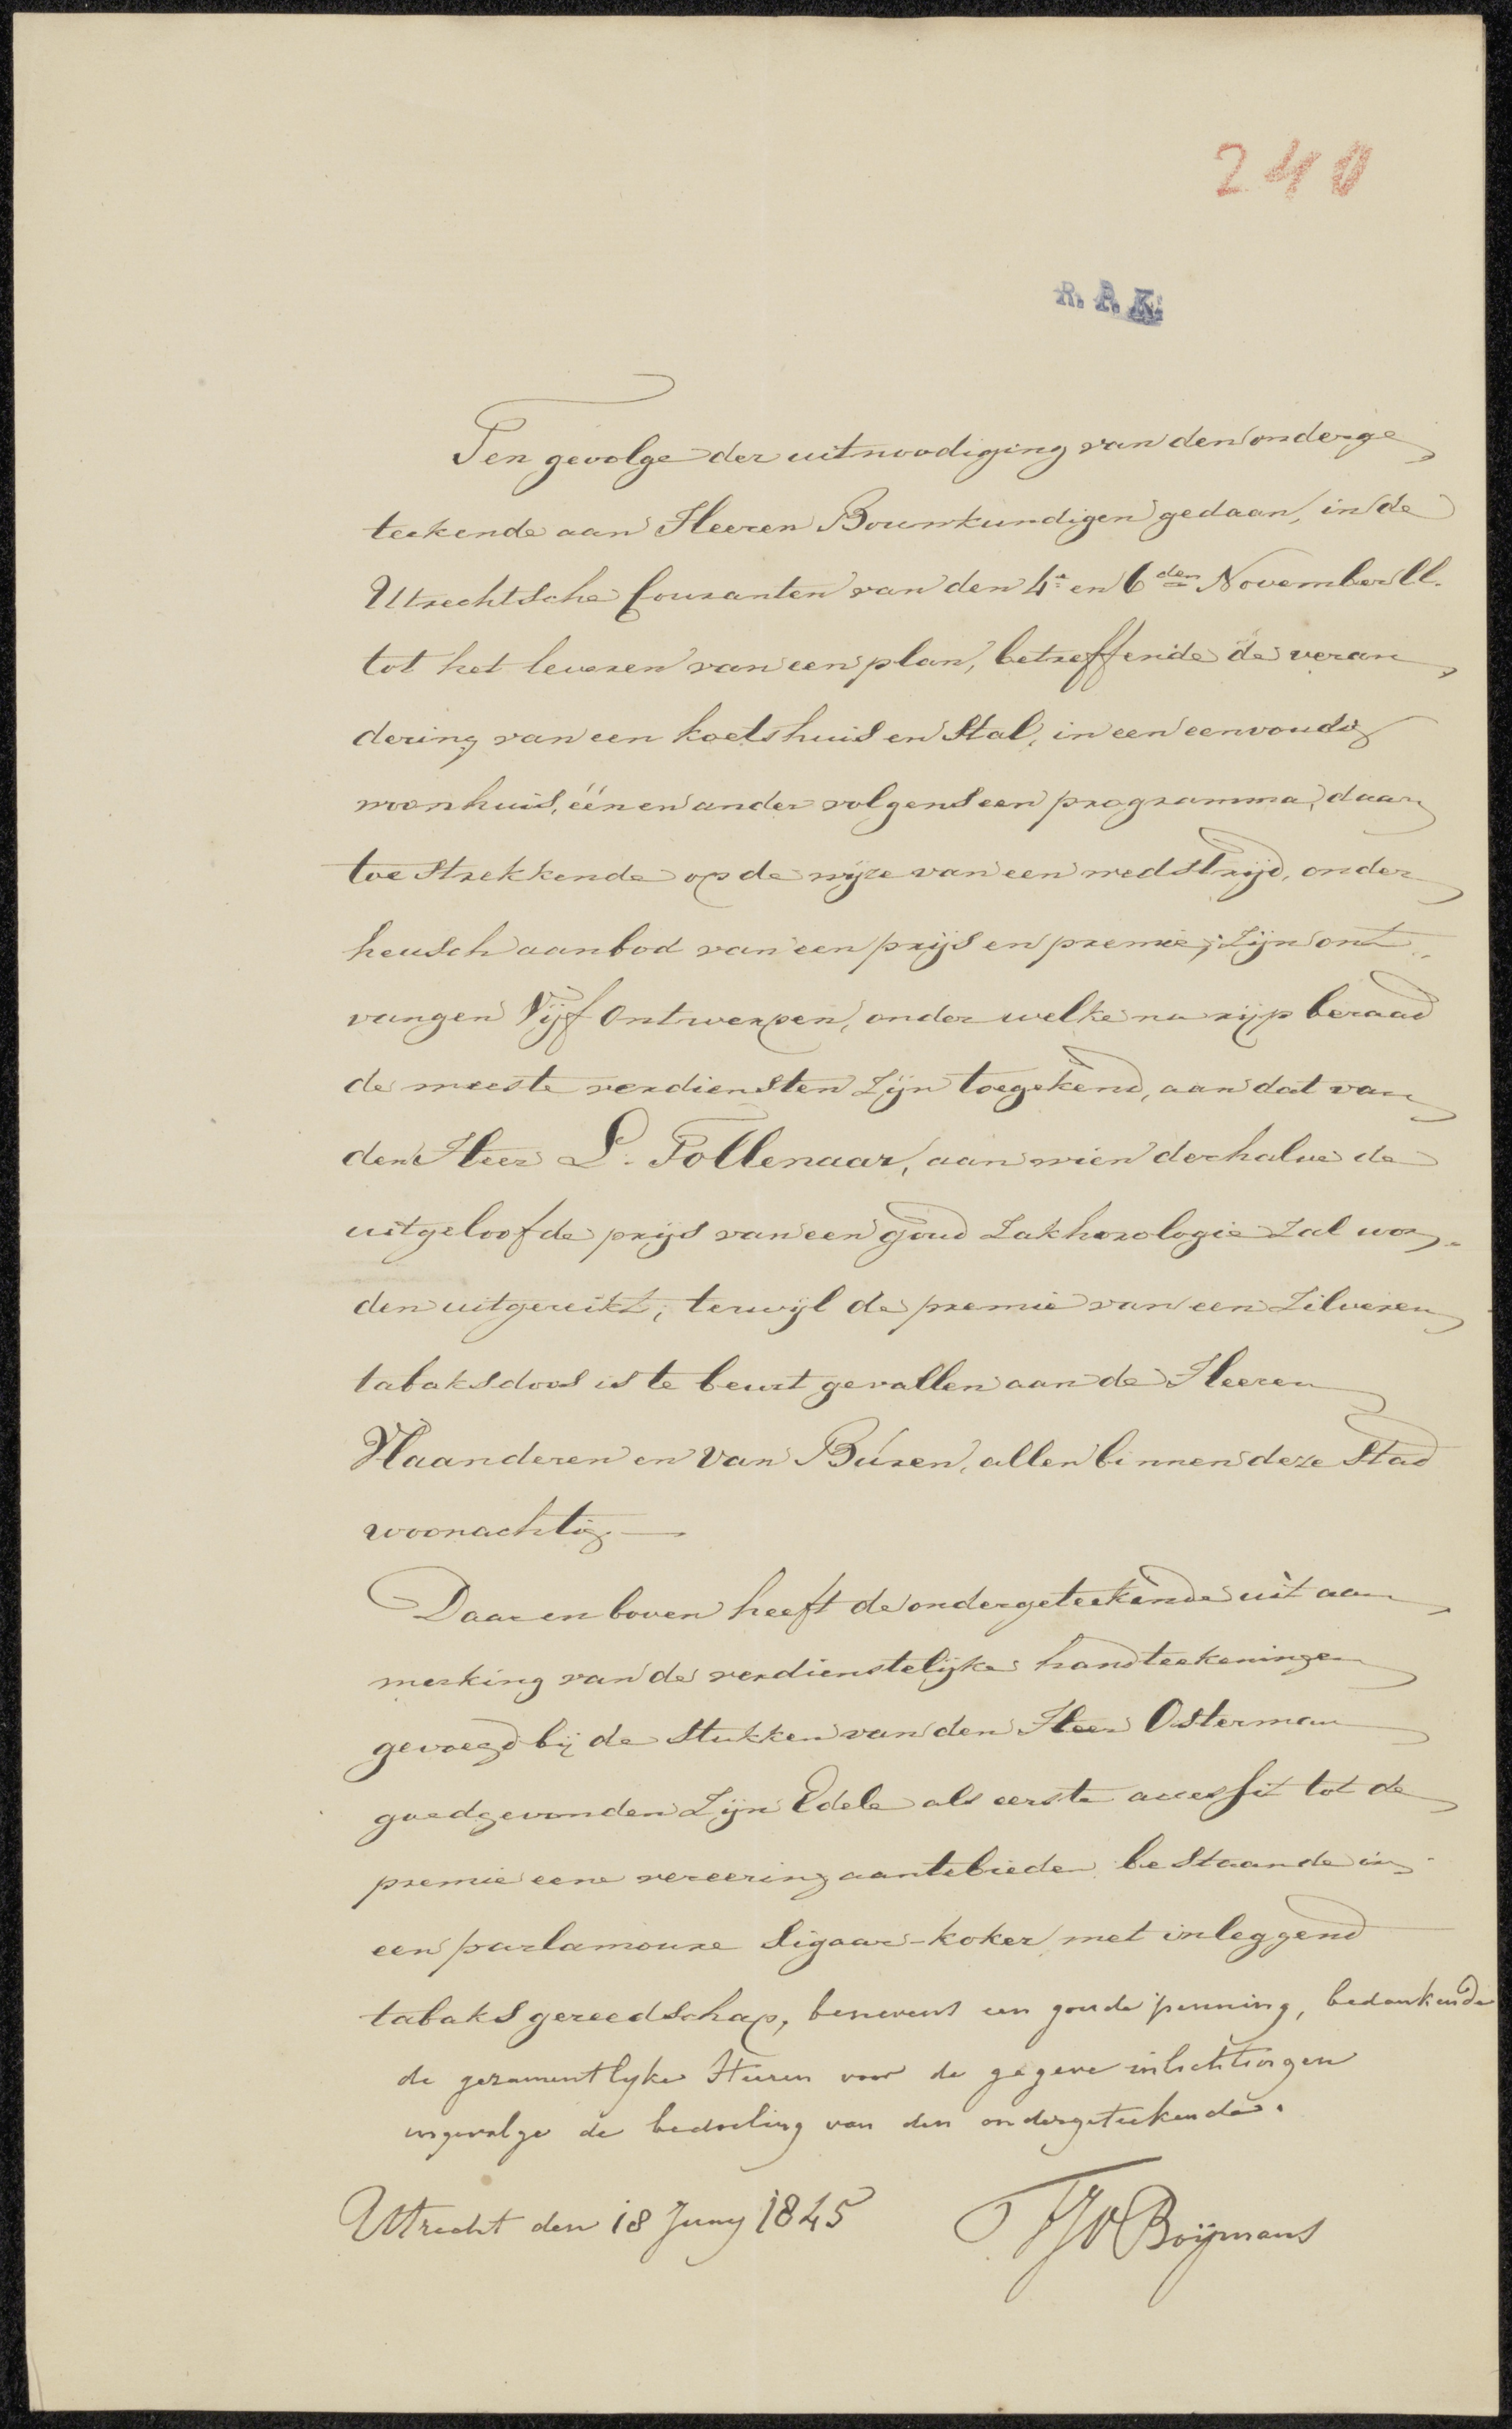 240
R. P. K.
Ten gevolge der uitnoodiging van den onderge
teekende aan Heeren Bouwkundigen gedaan, in de
Utrechtsche Couranten van den 4e en 6den November ll.
tot het leveren van een plan, betreffende de veran
dering van een koetshuis en Stal, in een eenvoudig
woonhuis, één en ander volgens een programma, daar
toe Strekkende op de wijze van een wedstrijd, onder
heusch aanbod van een prijs en premie; Zijn ont
vangen Vijf Ontwerpen, onder welke na rijp beraad
de meeste verdiensten Zijn toegekend, aan dat van
den Heer L. Tollenaar, aan wien derhalve de
uitgeloofde prijs van een goud Zakhorologie Zal wor
den uitgereikt, terwijl de premie van een Zilveren
tabaksdoos is te beurt gevallen aan de Heeren
Vlaanderen en Van Buren, allen binnen deze Stad
woonachtig. —
Daar en boven heeft de ondergeteekende uit aan
merking van de verdienstelijke handteekeningen
gevoegd bij de Stukken van den Heer Osterman
goedgevonden Zijn Edele als eerste accessit tot de
premie eene vereering aantebieden bestaande in
een parlamoure Sigaar-koker met inleggend
tabaks gereedschap, benevens een goude penning, bedankende
de gezamentlyke Heeren voor de gegeve inlichtingen
ingevolge de bedoeling van den ondergeteekende.
Utrecht den 18 Juny 1845 FJO Boijmans